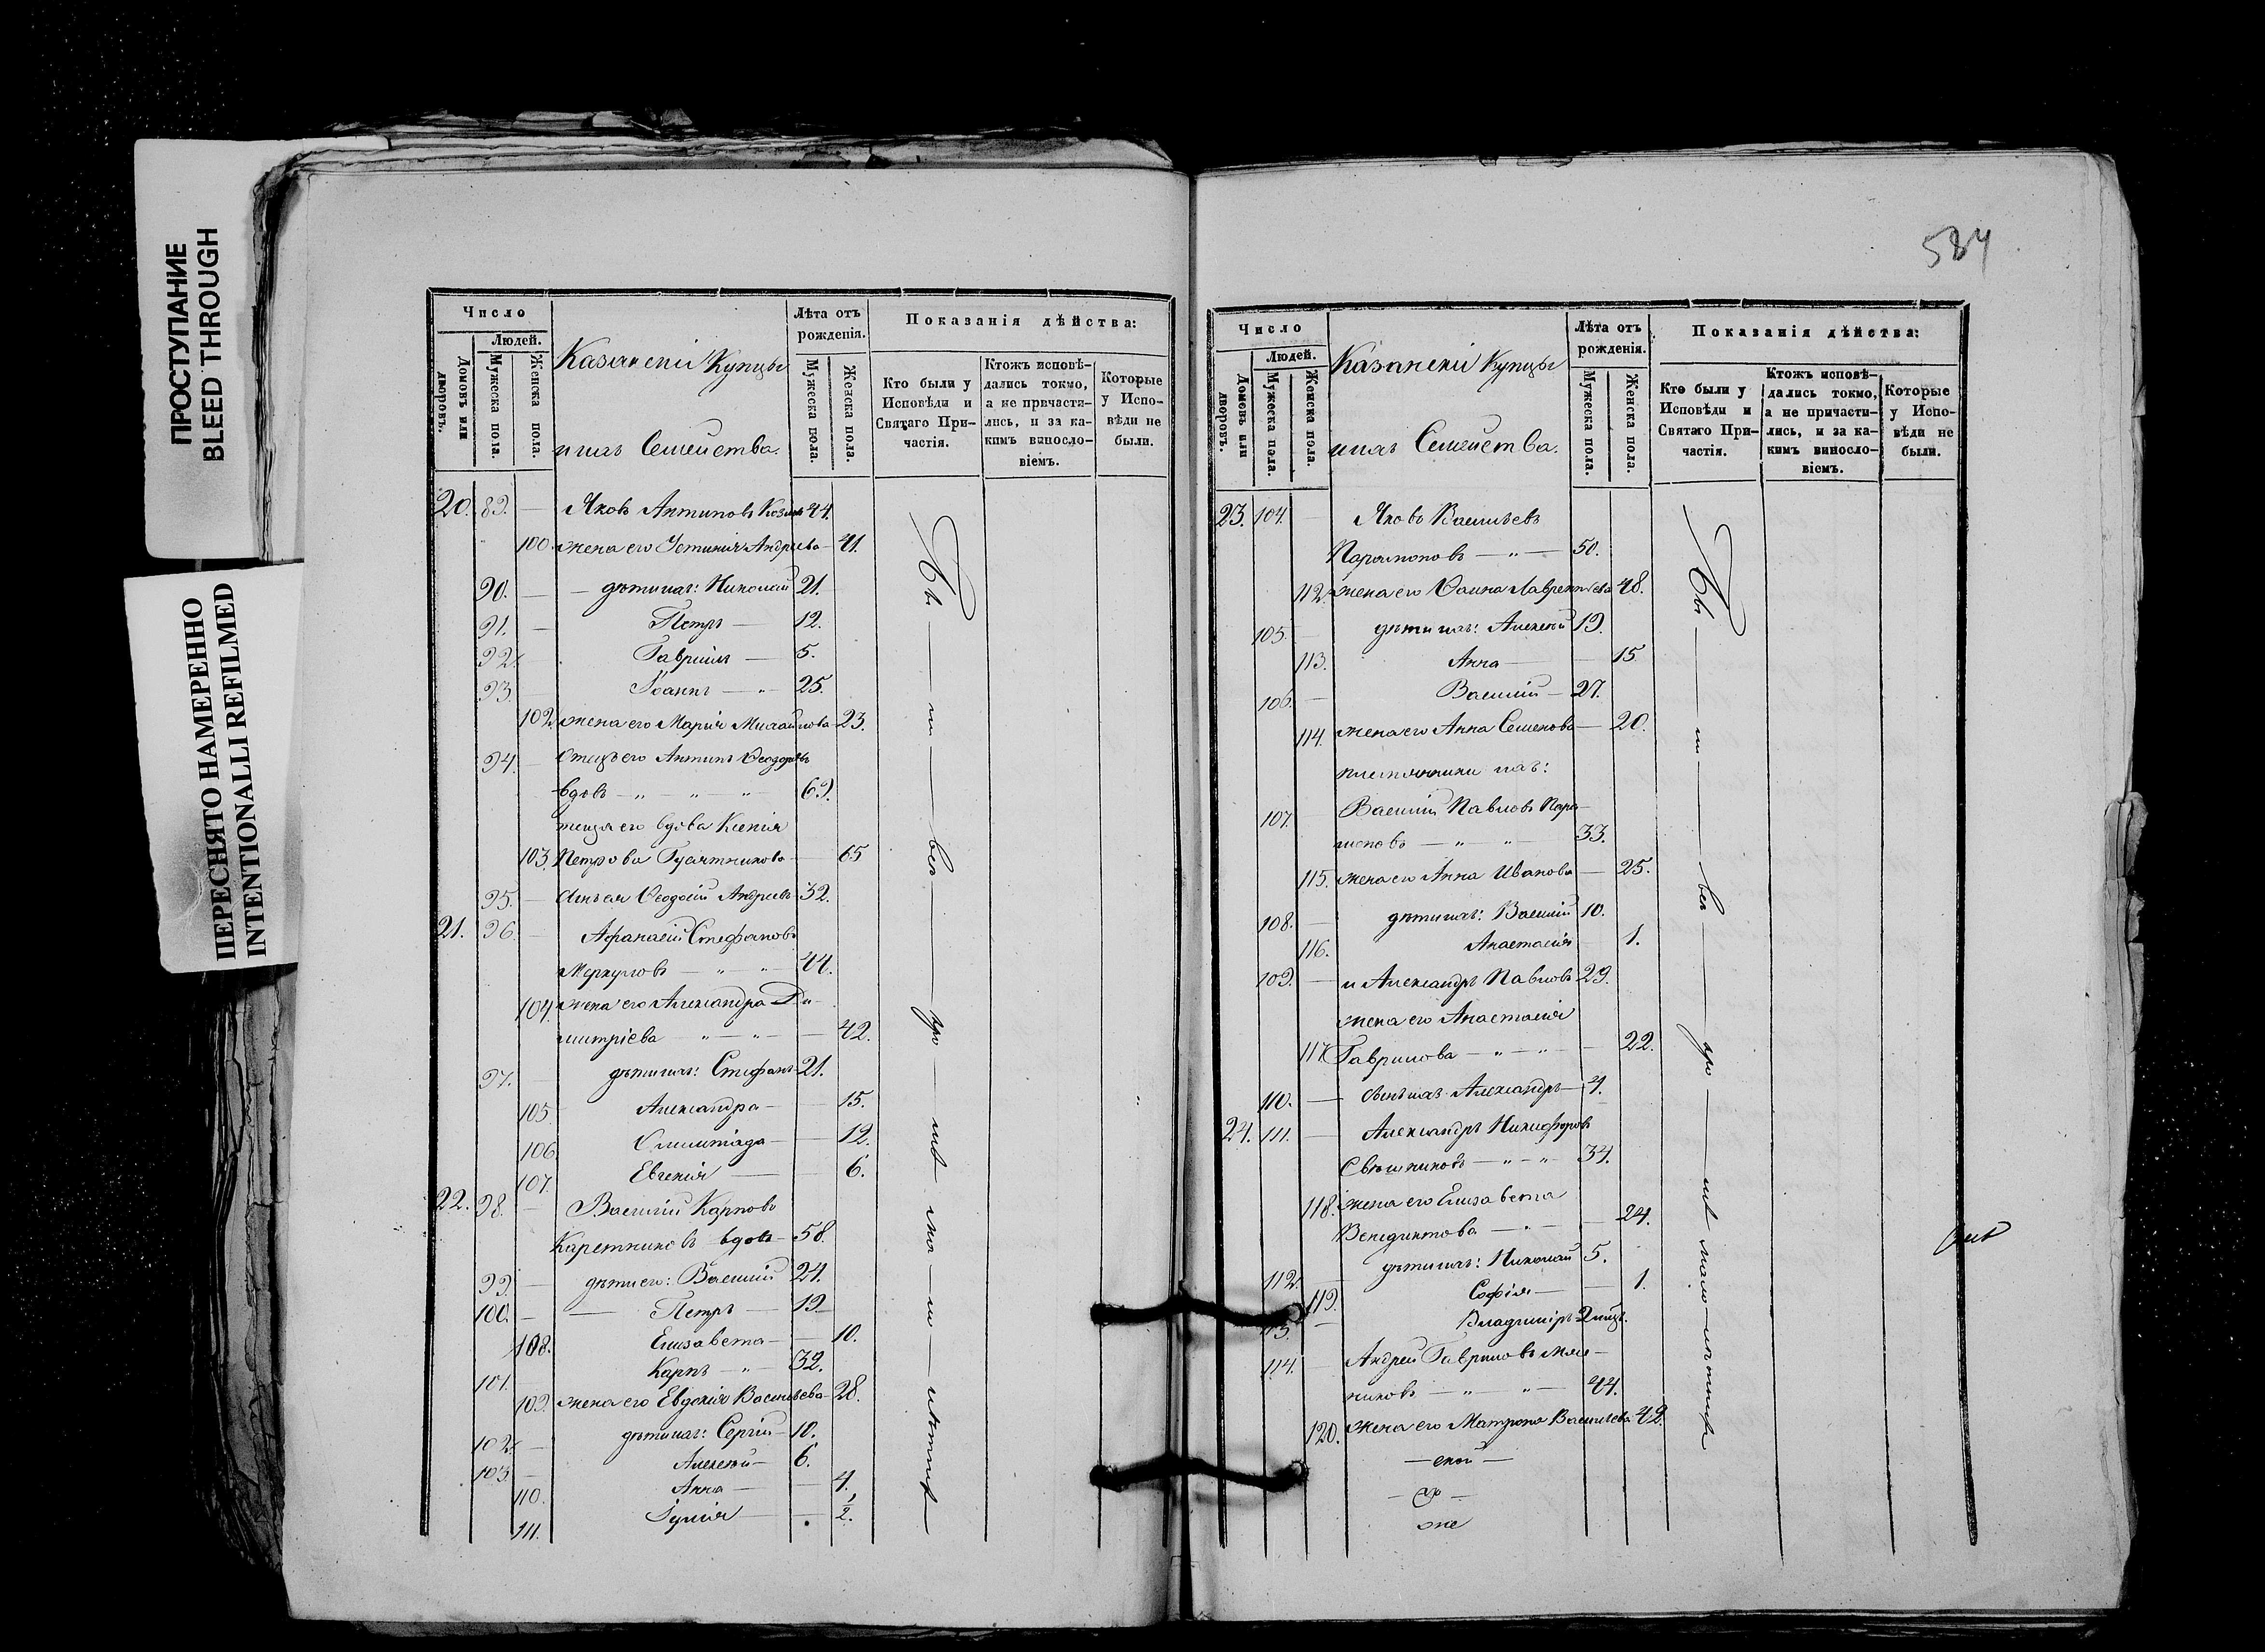 ПРОСТУПАНИЕ
BLEED THROUGH
ПЕРЕСНЯТО НАМЕРЕННО
INTENTIONALLI REFILMED
Число
Людей.
Домовъ или дворовъ.
Мужеска пола.
Женска пола.
Казанскіи Купцы
и ихъ Семейства.
Лѣта отъ рожденія.
Мужеска пола.
Женска пола.
Показанія дѣйства:
Кто были у Исповѣди и Святаго Причастія.
Ктожъ исповѣ-
дались токмо,
а не причасти-
лись, и за ка-
кимъ винosло-
віемъ.
Которые
у Испо-
вѣди не
были.
20. 89. — Яковъ Антиповъ 44.
100. жена его Устинія Андреева — 41.
90. — дѣти ихъ: Николай 21.
91. — Петръ — 12.
92. — Гавріилъ — 5.
93. — Іоаннъ — 25.
102. жена его Марія Михайлова — 23.
94. — отецъ его Антипъ Ѳеодоровъ
вдовъ — 69.
теща его вдова Ксенія
103. Петрова Гусятникова — 65
95. — Ѳеодосій Андреевъ 32.
21. 96. — Афанасій Стефановъ
Меркуловъ — 44.
104. жена его Александра Ди-
митріева — 42.
97. — дѣти ихъ: Стефанъ 21.
105. Александра — 15.
106. Олимпіада — 12.
107. Евгенія — 6.
22. 98. — Василій Карповъ
Каретниковъ вдовъ — 58.
99. — дѣти его: Василій 24.
100. — Петръ — 19
108. Елизавета — 10.
101. Карпъ — 32.
109. жена его Евдокія Васильева — 28.
102. — дѣти ихъ: Сергій — 10.
103. — Алексѣй — 6.
110. Анна — 4.
111. Іулія — 1/2.
584
Число
Людей.
Домовъ или дворовъ.
Мужеска пола.
Женска пола.
Казанскіи Купцы
и ихъ Семейства.
Лѣта отъ рожденія.
Мужеска пола.
Женска пола.
Показанія дѣйства:
Кто были у Исповѣди и Святаго Причастія.
Ктожъ исповѣ-
дались токмо,
а не причасти-
лись, и за ка-
кимъ винosло-
віемъ.
Которые
у Испо-
вѣди не
были.
23. 104. — Яковъ Васильевъ
Парамоновъ — 50.
112. жена его Лаврентьева 48.
105. — дѣти ихъ: Алексѣй 19.
113. Анна — 15.
106. — Василій — 27.
114. жена его Анна Семенова — 20.
племянники ихъ:
107. Василій Павловъ Пара-
моновъ — 33.
115. жена его Анна Иванова — 25.
108. — дѣти ихъ: Василій 10.
116. Анастасія — 1.
109. — и Александръ Павловъ 29.
жена его Анастасія
117. Гаврилова — 22.
110. — сынъ ихъ Александръ — 4.
24. 111. — Александръ Никифоровъ
Свѣшниковъ — 34.
118. жена его Елизавета
Венедиктова — 24.
112. — дѣти ихъ: Николай 5.
119. Софія — 1.
113. — Владиміръ 2 мѣц.
114. — Андрей Гавриловъ Мяс-
никовъ — 44.
120. жена его Матрона Васильева 42